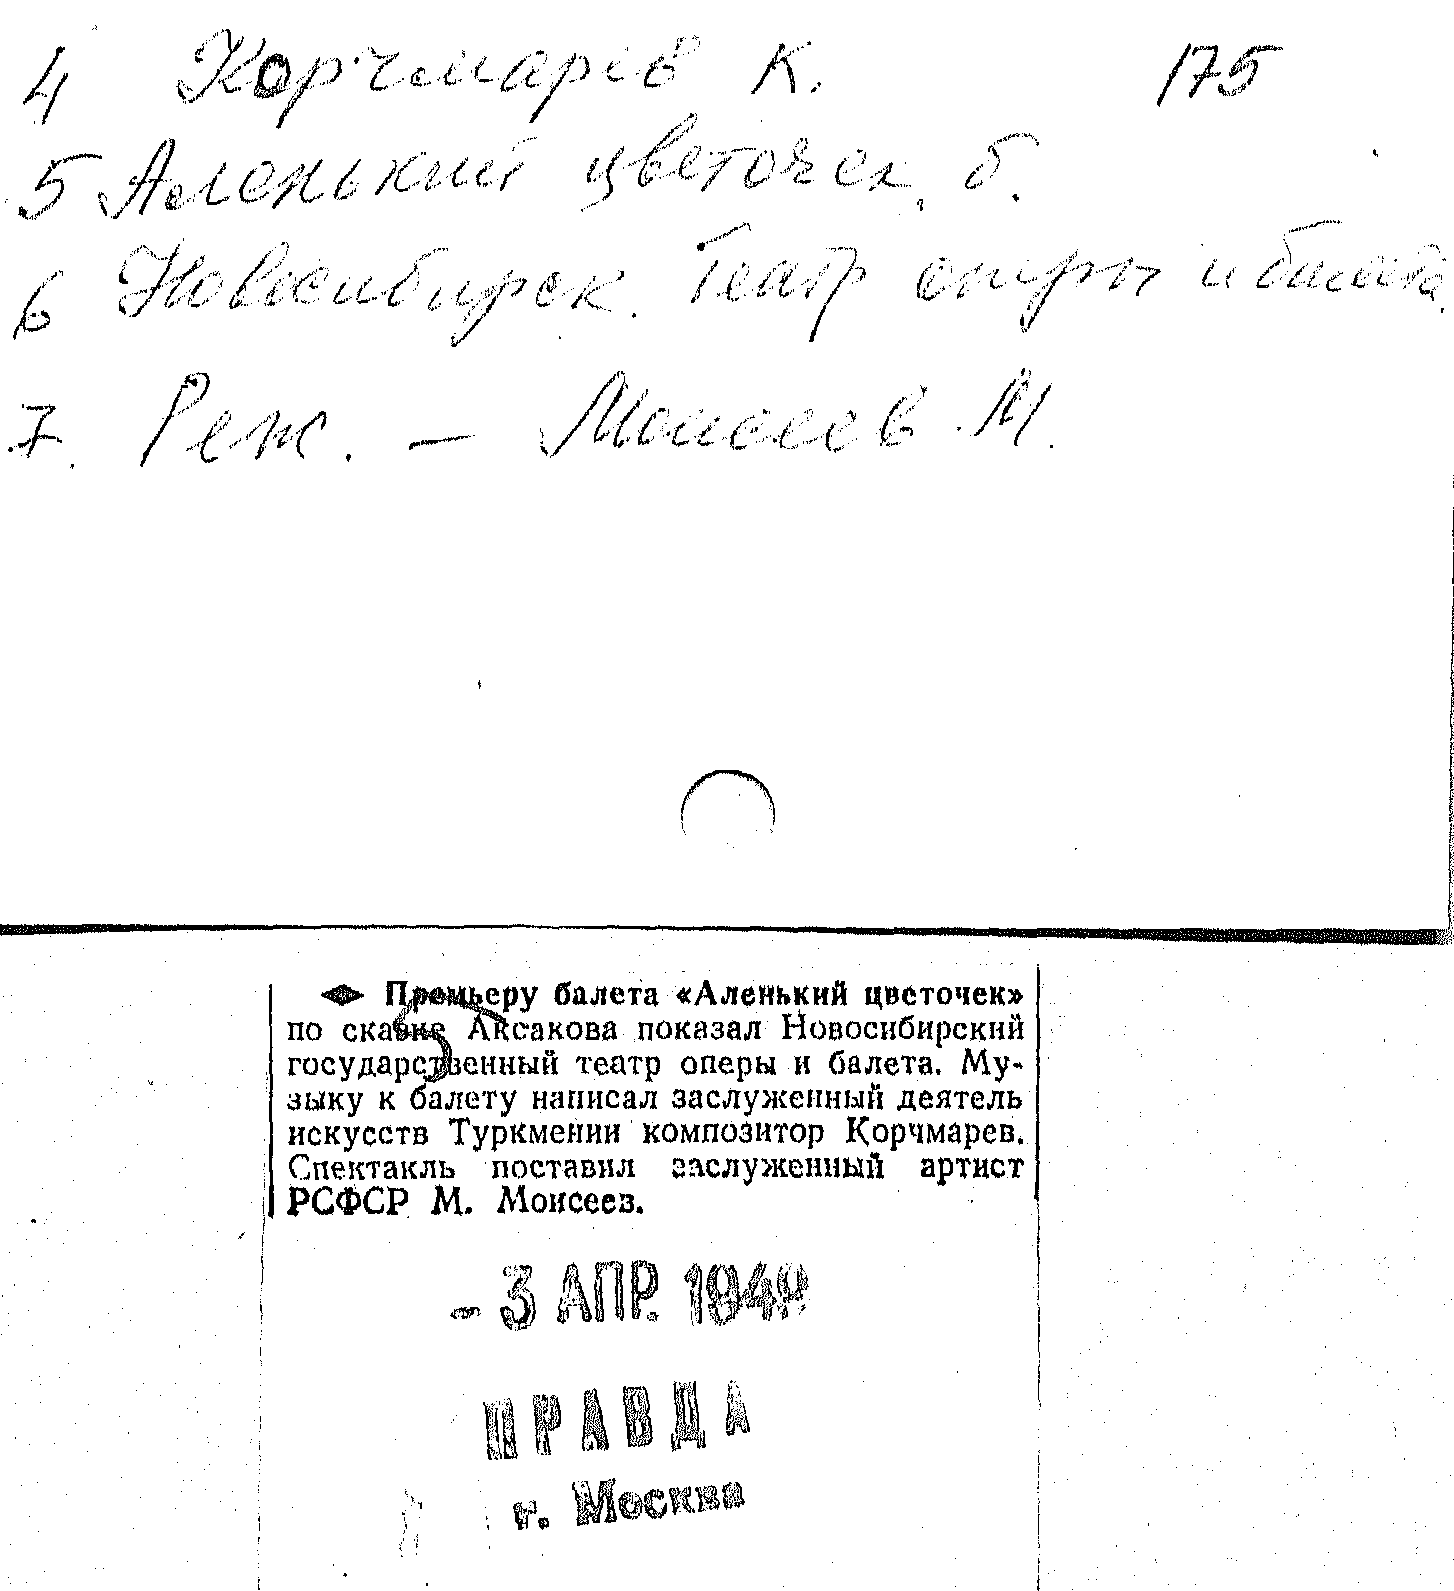 4 Корчмарёв К. 175
5 Аленький цветочек, б.
6 Новосибирск. Театр оперы и балета.
7. Реж. — Моисеев М.
Премьеру балета «Аленький цветочек»
по сказке Аксакова показал Новосибирский
государственный театр оперы и балета. Му-
зыку к балету написал заслуженный деятель
искусств Туркмении композитор Корчмарев.
Спектакль поставил заслуженный артист
РСФСР М. Моисеев.
- 3 АПР. 1949
ПРАВДА
г. Москва